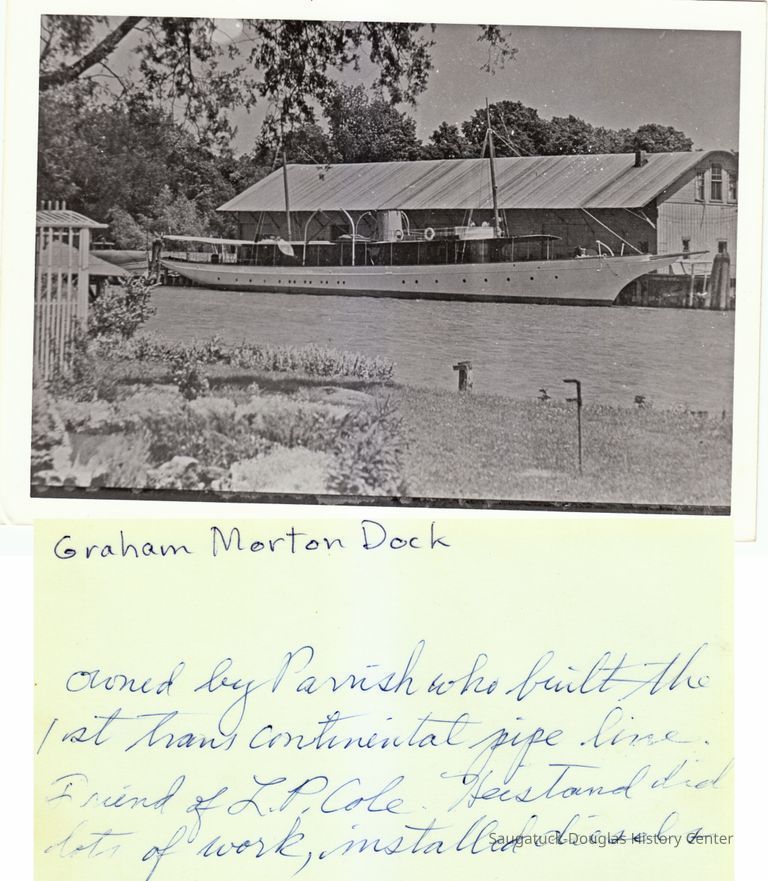 Graham Morton Dock
owned by Parrish who built the
1st trans continental pipe line.
Friend of L.P. Cole. Heistand did
lots of work, installed
Saugatuck-Douglas History Center